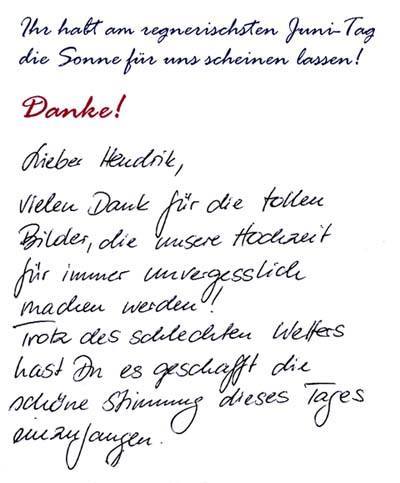 Ihr habt am regnerischsten Juni-Tag
die Sonne für uns scheinen lassen!
Danke!
Lieber Hendrik,
vielen Dank für die tollen
Bilder, die unsere Hochzeit
für immer unvergesslich
machen werden!
Trotz des schlechten Wetters
hast Du es geschafft die
schöne Stimmung dieses Tages
einzufangen.